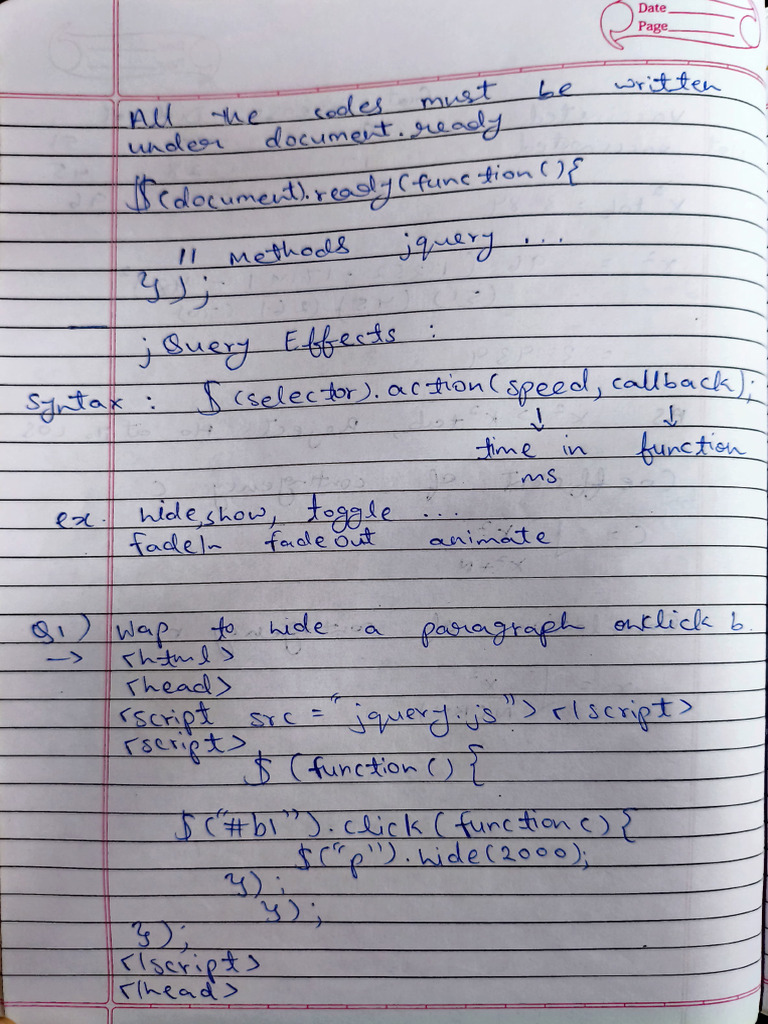 Date
Page
All the codes must be written
under document.ready
$(document).ready(function(){
// Methods jquery ...
});
jQuery Effects :
Syntax : $(selector).action(speed, callback);
↓ ↓
time in function
ms
ex. hide, show, toggle ...
fadeIn fadeOut animate
Q1) Wap to hide a paragraph onclick b.
→ <html>
<head>
<script src = "jquery.js"> </script>
<script>
$ (function () {
$("#b1").click(function(){
$("p").hide(2000);
});
});
});
</script>
</head>